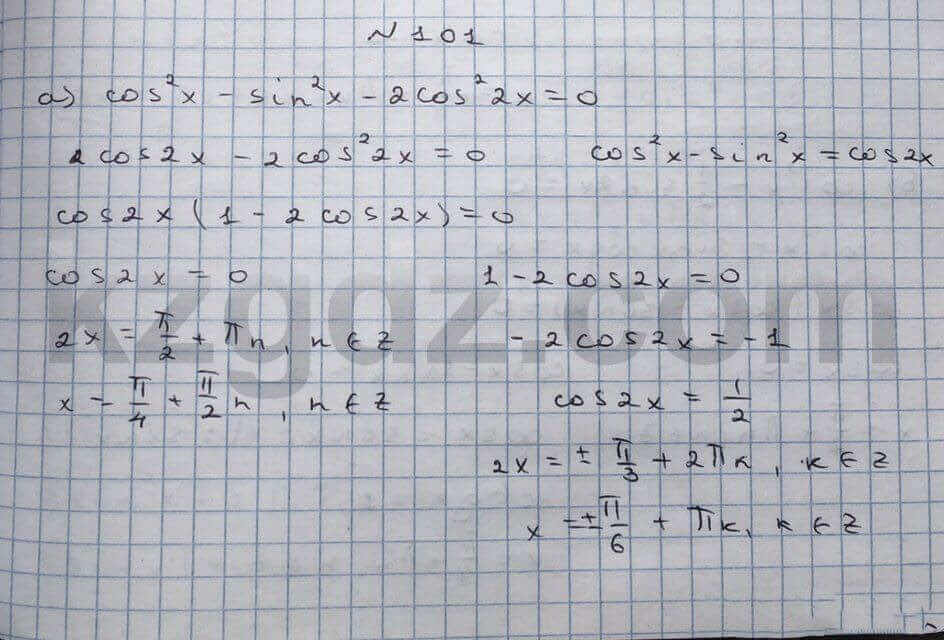 N 101
a) cos²x - sin²x - 2cos²2x = 0
2cos2x - 2cos²2x = 0 cos²x - sin²x = cos2x
cos2x(1 - 2cos2x) = 0
cos2x = 0 1 - 2cos2x = 0
2x = π/2 + πn, n ∈ Z - 2cos2x = -1
x = π/4 + π/2 n, n ∈ Z cos2x = 1/2
2x = ± π/3 + 2πk, k ∈ Z
x = ± π/6 + πk, k ∈ Z
kzgdz.com